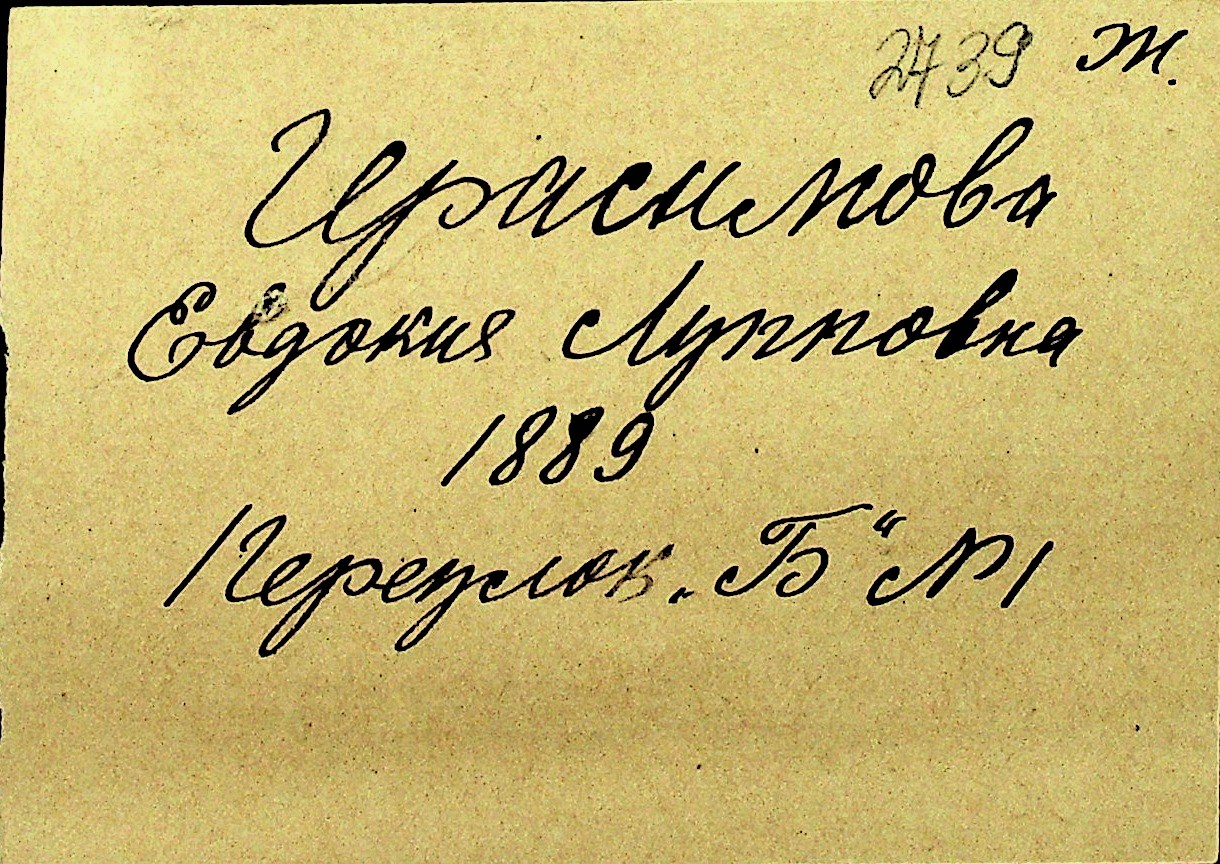 2439 Ж.
Герасимова
Евдокия Лупповна
1889
Переулок „Б“ № 1